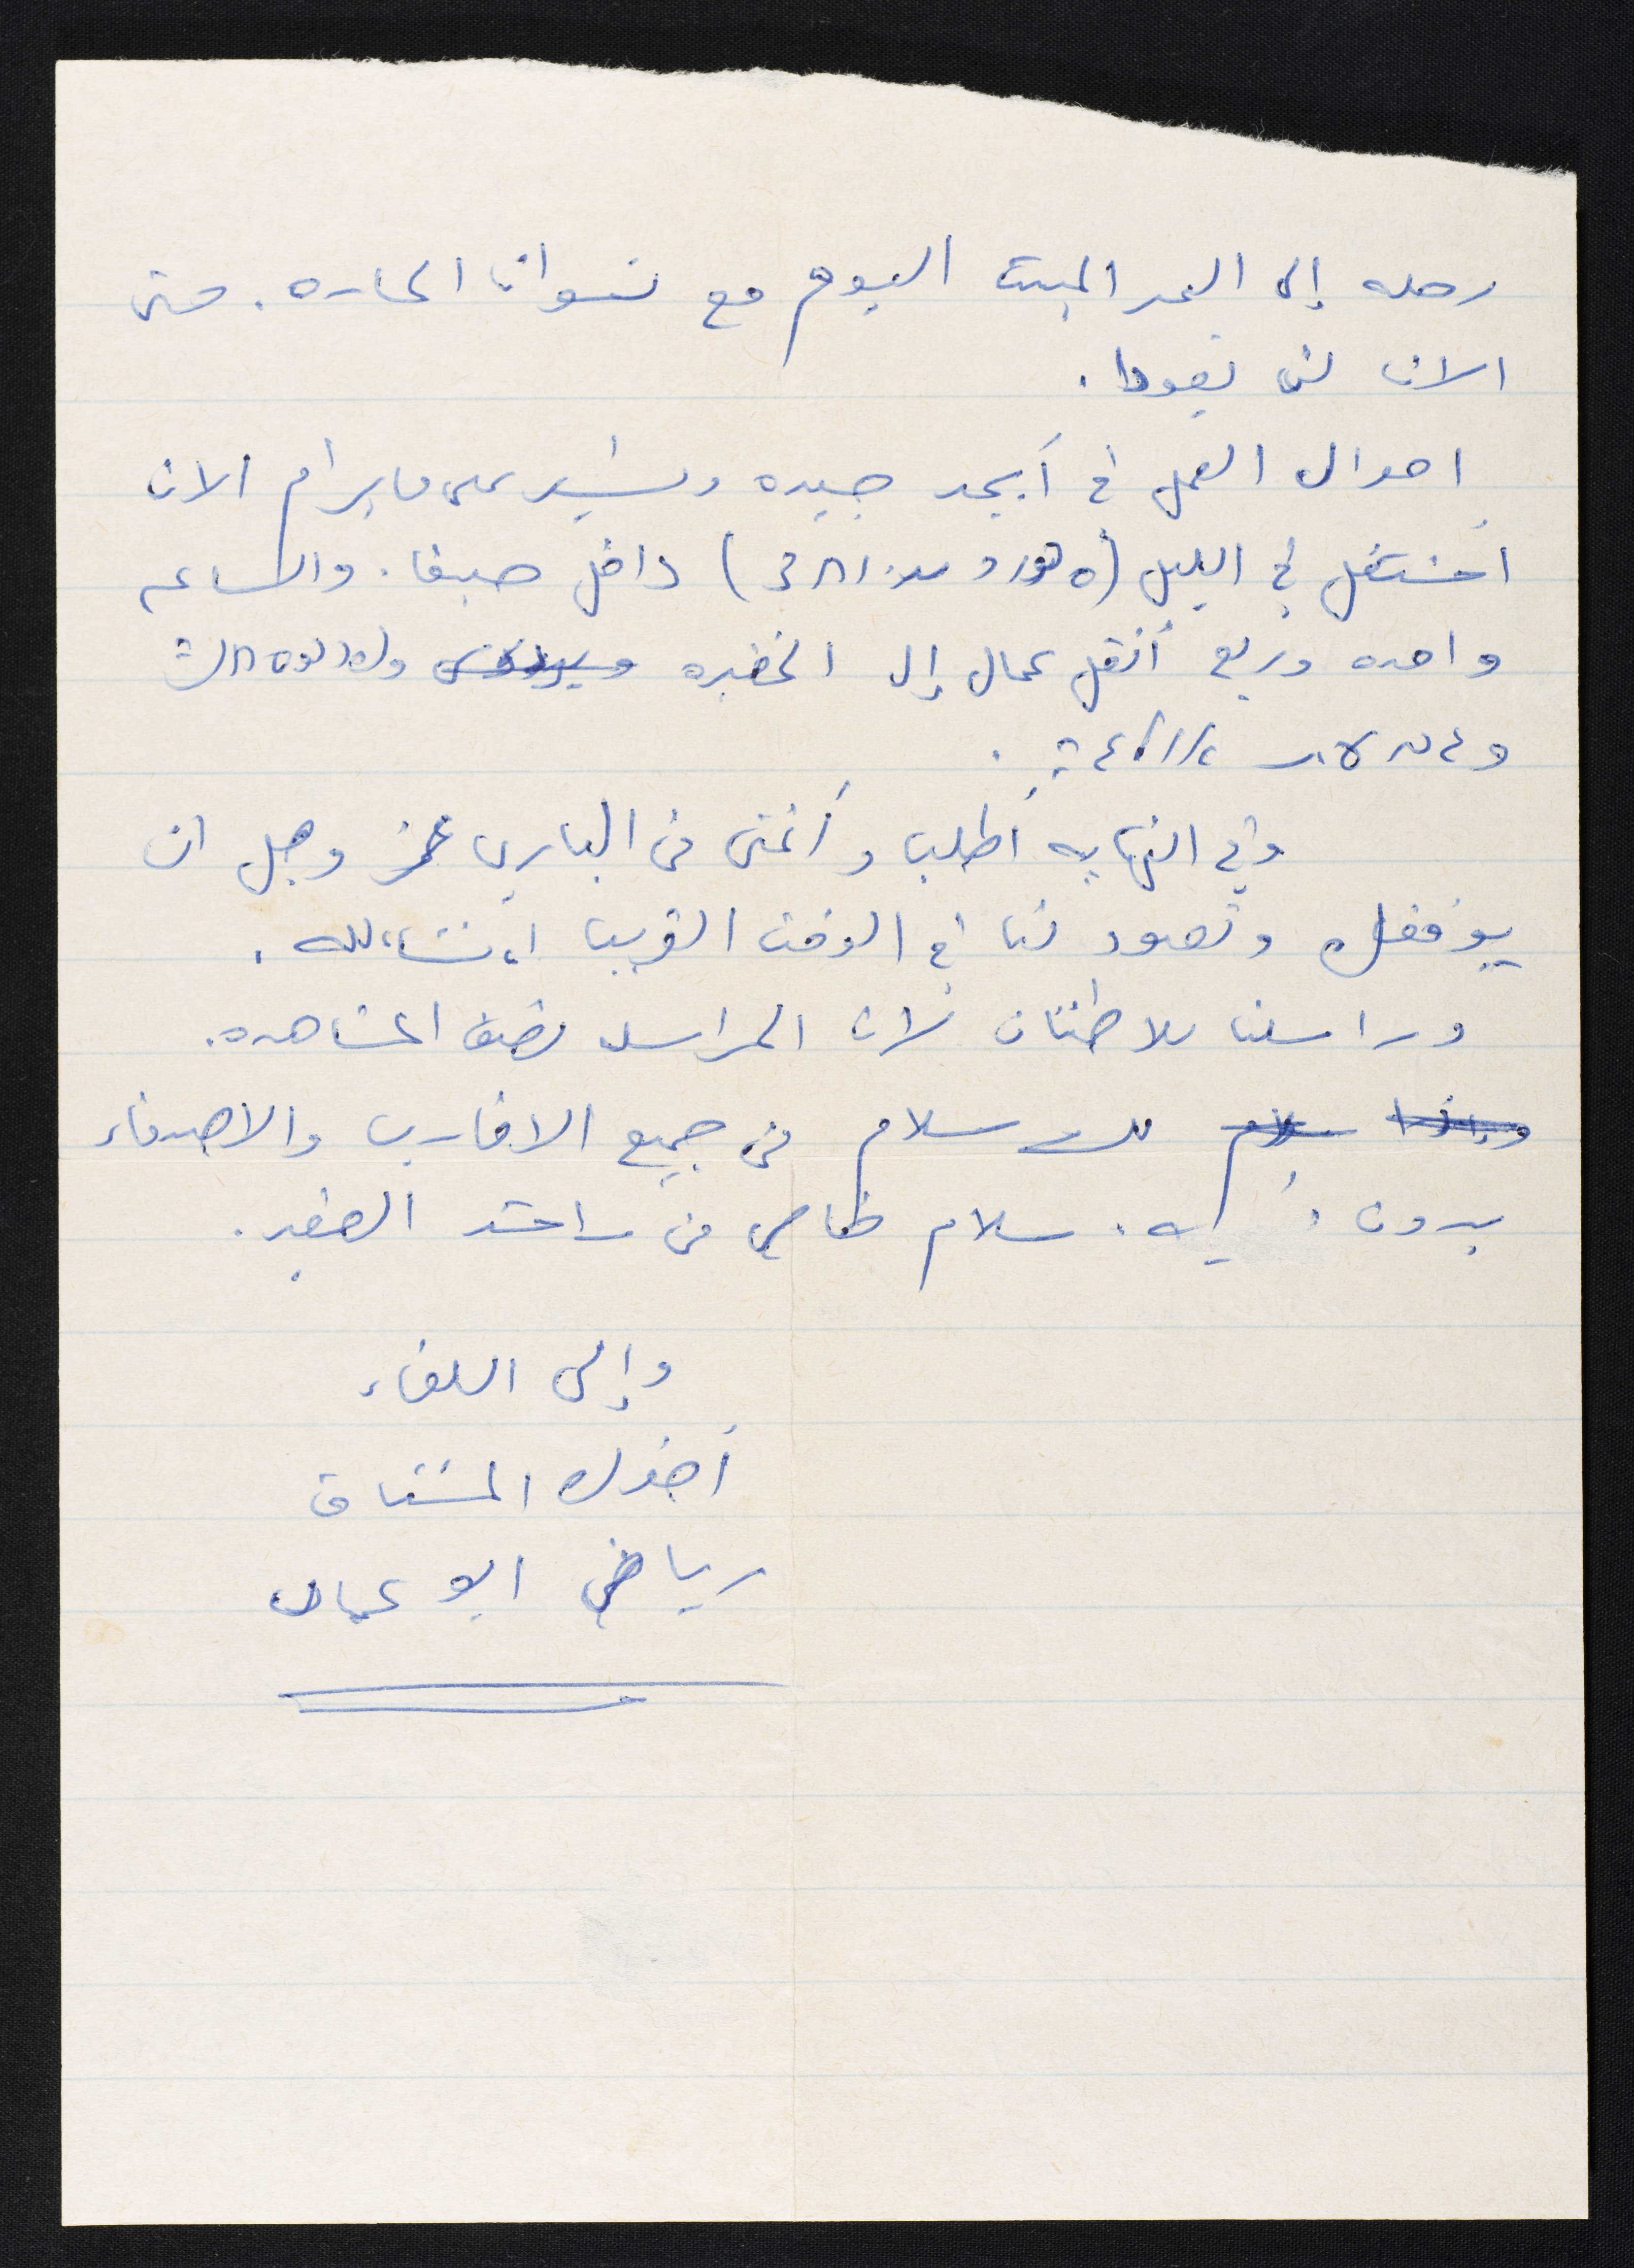 رحله إلى البحر الميت اليوم مع نسوان الحاره. حتى
الان لم يعودا.
احوال العمل في أيجد جيده وتسير على ما يرام الان
أشتغل في الليل ( ) داخل حيفا. والساعه
واحده وربع أنقل عمال إلى الخضيره
وفي النهايه أطلب وأتمنى من الباري عز وجل ان
يوفقك وتعود لنا في الوقت القريب انشاءالله.
وراسلنا للاطمئنان لان المراسله نصف المشاهده.
سلام لك سلام من جميع الاقارب والاصدقاء
بدون . سلام خاص من راشد الصغير.
وإلى اللقاء
أخوك المشتاق
رياض ابو عماد